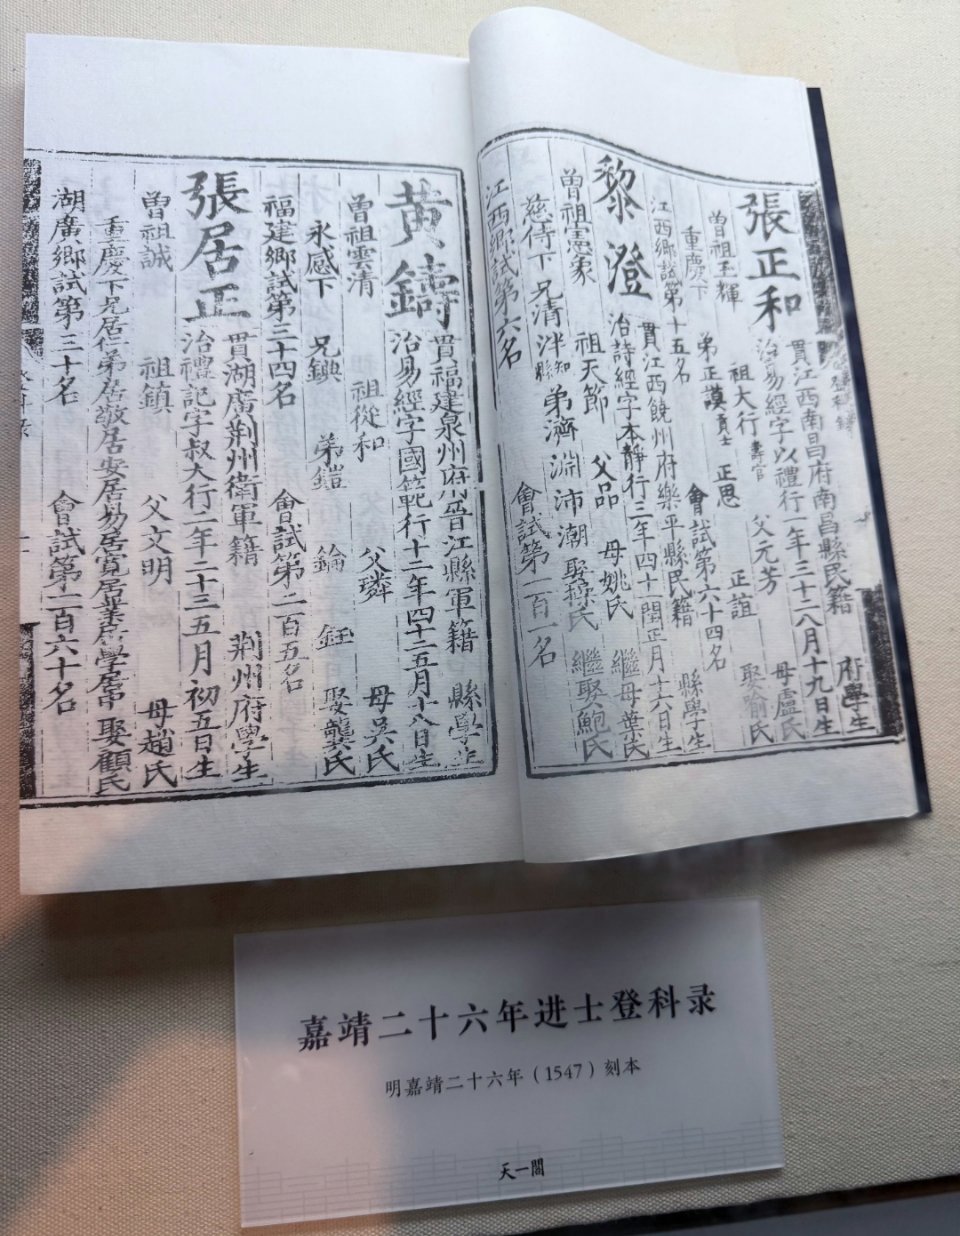 張正和
貫江西南昌府南昌縣民籍 府學生
治易經字以禮行一年三十二八月十九日生
曾祖玉輝 祖大行 壽官 父元芳 母盧氏
重慶下 弟正謨 貢士 正思 正誼 娶俞氏
江西鄉試第十五名 會試第六十四名
黎澄
貫江西饒州府樂平縣民籍 縣學生
治詩經字本靜行三年四十閏正月十六日生
曾祖憲象 祖天節 父品 母姚氏 繼母葉氏
慈侍下 兄清 泮 知縣 弟濟 淵 沛 潮 娶操氏 繼娶鮑氏
江西鄉試第六名 會試第一百一名
黃鑄
貫福建泉州府晉江縣軍籍 縣學生
治易經字國範行十二年四十二五月十八日生
曾祖雲清 祖從和 父璘 母吳氏
永感下 兄鐭 弟鎧 錀 鉦 娶龔氏
福建鄉試第三十四名 會試第二百五名
張居正
貫湖廣荆州衛軍籍 荆州府學生
治禮記字叔大行一年二十三五月初五日生
曾祖誠 祖鎮 父文明 母趙氏
重慶下兄居仁弟居敬居安居易居寬居業居學居中 娶顧氏
湖廣鄉試第三十名 會試第一百六十名
嘉靖二十六年进士登科录
明嘉靖二十六年（1547）刻本
天一閣